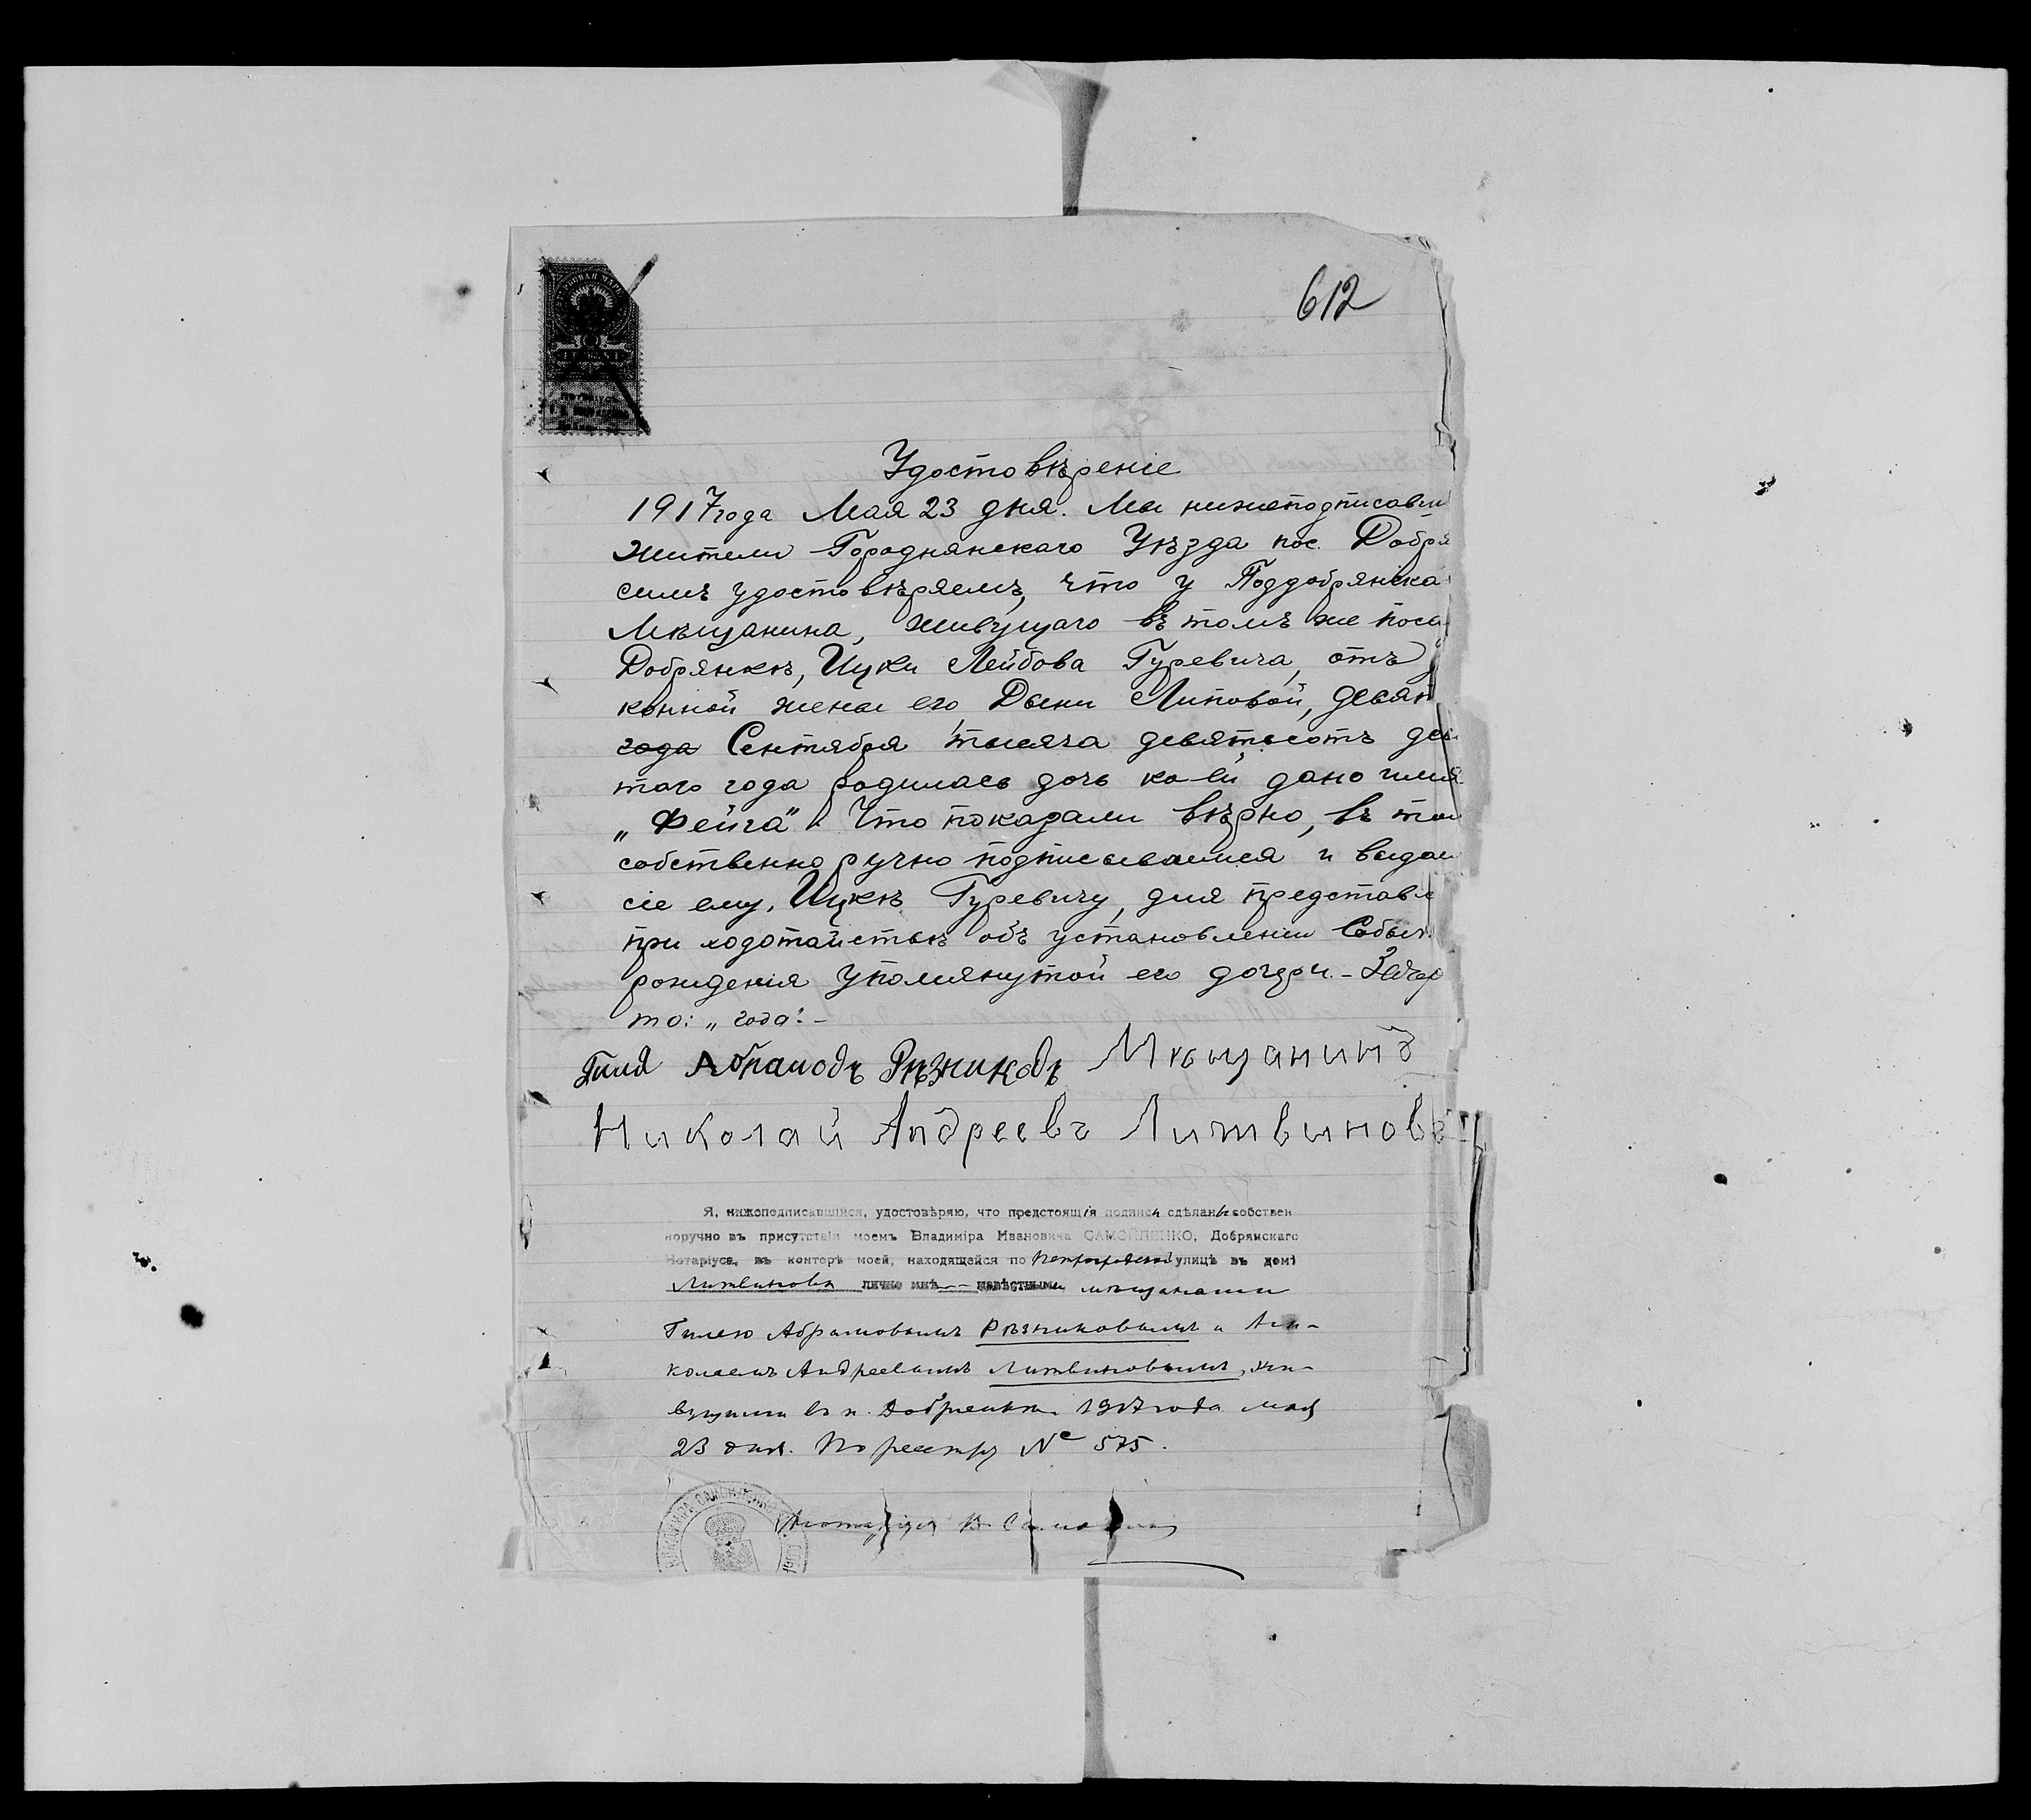 612
Удостовѣреніе
1917 года Мая 23 дня. Мы нижеподписавши
жители Городнянскаго Уѣзда пос. Добря
симъ удостовѣряемъ, что у Поддобрянска
Мѣщанина, живущаго въ томъ же поса
Добрянкѣ, Ицки Лейбова Гуревича, отъ
конной жены его Дыни Липовой, девят
года Сентября тысяча девятьсотъ дев
таго года родилась дочь ко-ей дано имя
„Фейга" Что показали вѣрно, въ том
собственноручно подписываемся и выдаем
сіе ему, Ицкѣ Гуревичу, для представле
при ходотайствѣ объ установленіи Событ
рожденія упомянутой его дочери. – Зачер
то: „года". –
Гиля Абрамовъ Рѣзниковъ Мѣщанинъ
Николай Андреевъ Литвиновъ
Я, нижеподписавшійся, удостовѣряю, что предстоящія подписи сдѣланы собствен
норучно въ присутствіи моемъ Владиміра Ивановича САМОЙЛЕНКО, Добрянскаго
Нотаріуса, въ конторѣ моей, находящейся по Петроградской улицѣ въ домѣ
Литвинова лично мнѣ извѣстными мѣщанами
Гилею Абрамовымъ Рѣзниковымъ и Ни-
колаемъ Андреевымъ Литвиновымъ, жи-
вущими въ п. Добрянкѣ. 1917 года мая
23 дня. По реестру № 575.
Нотаріусъ В. Самойленко